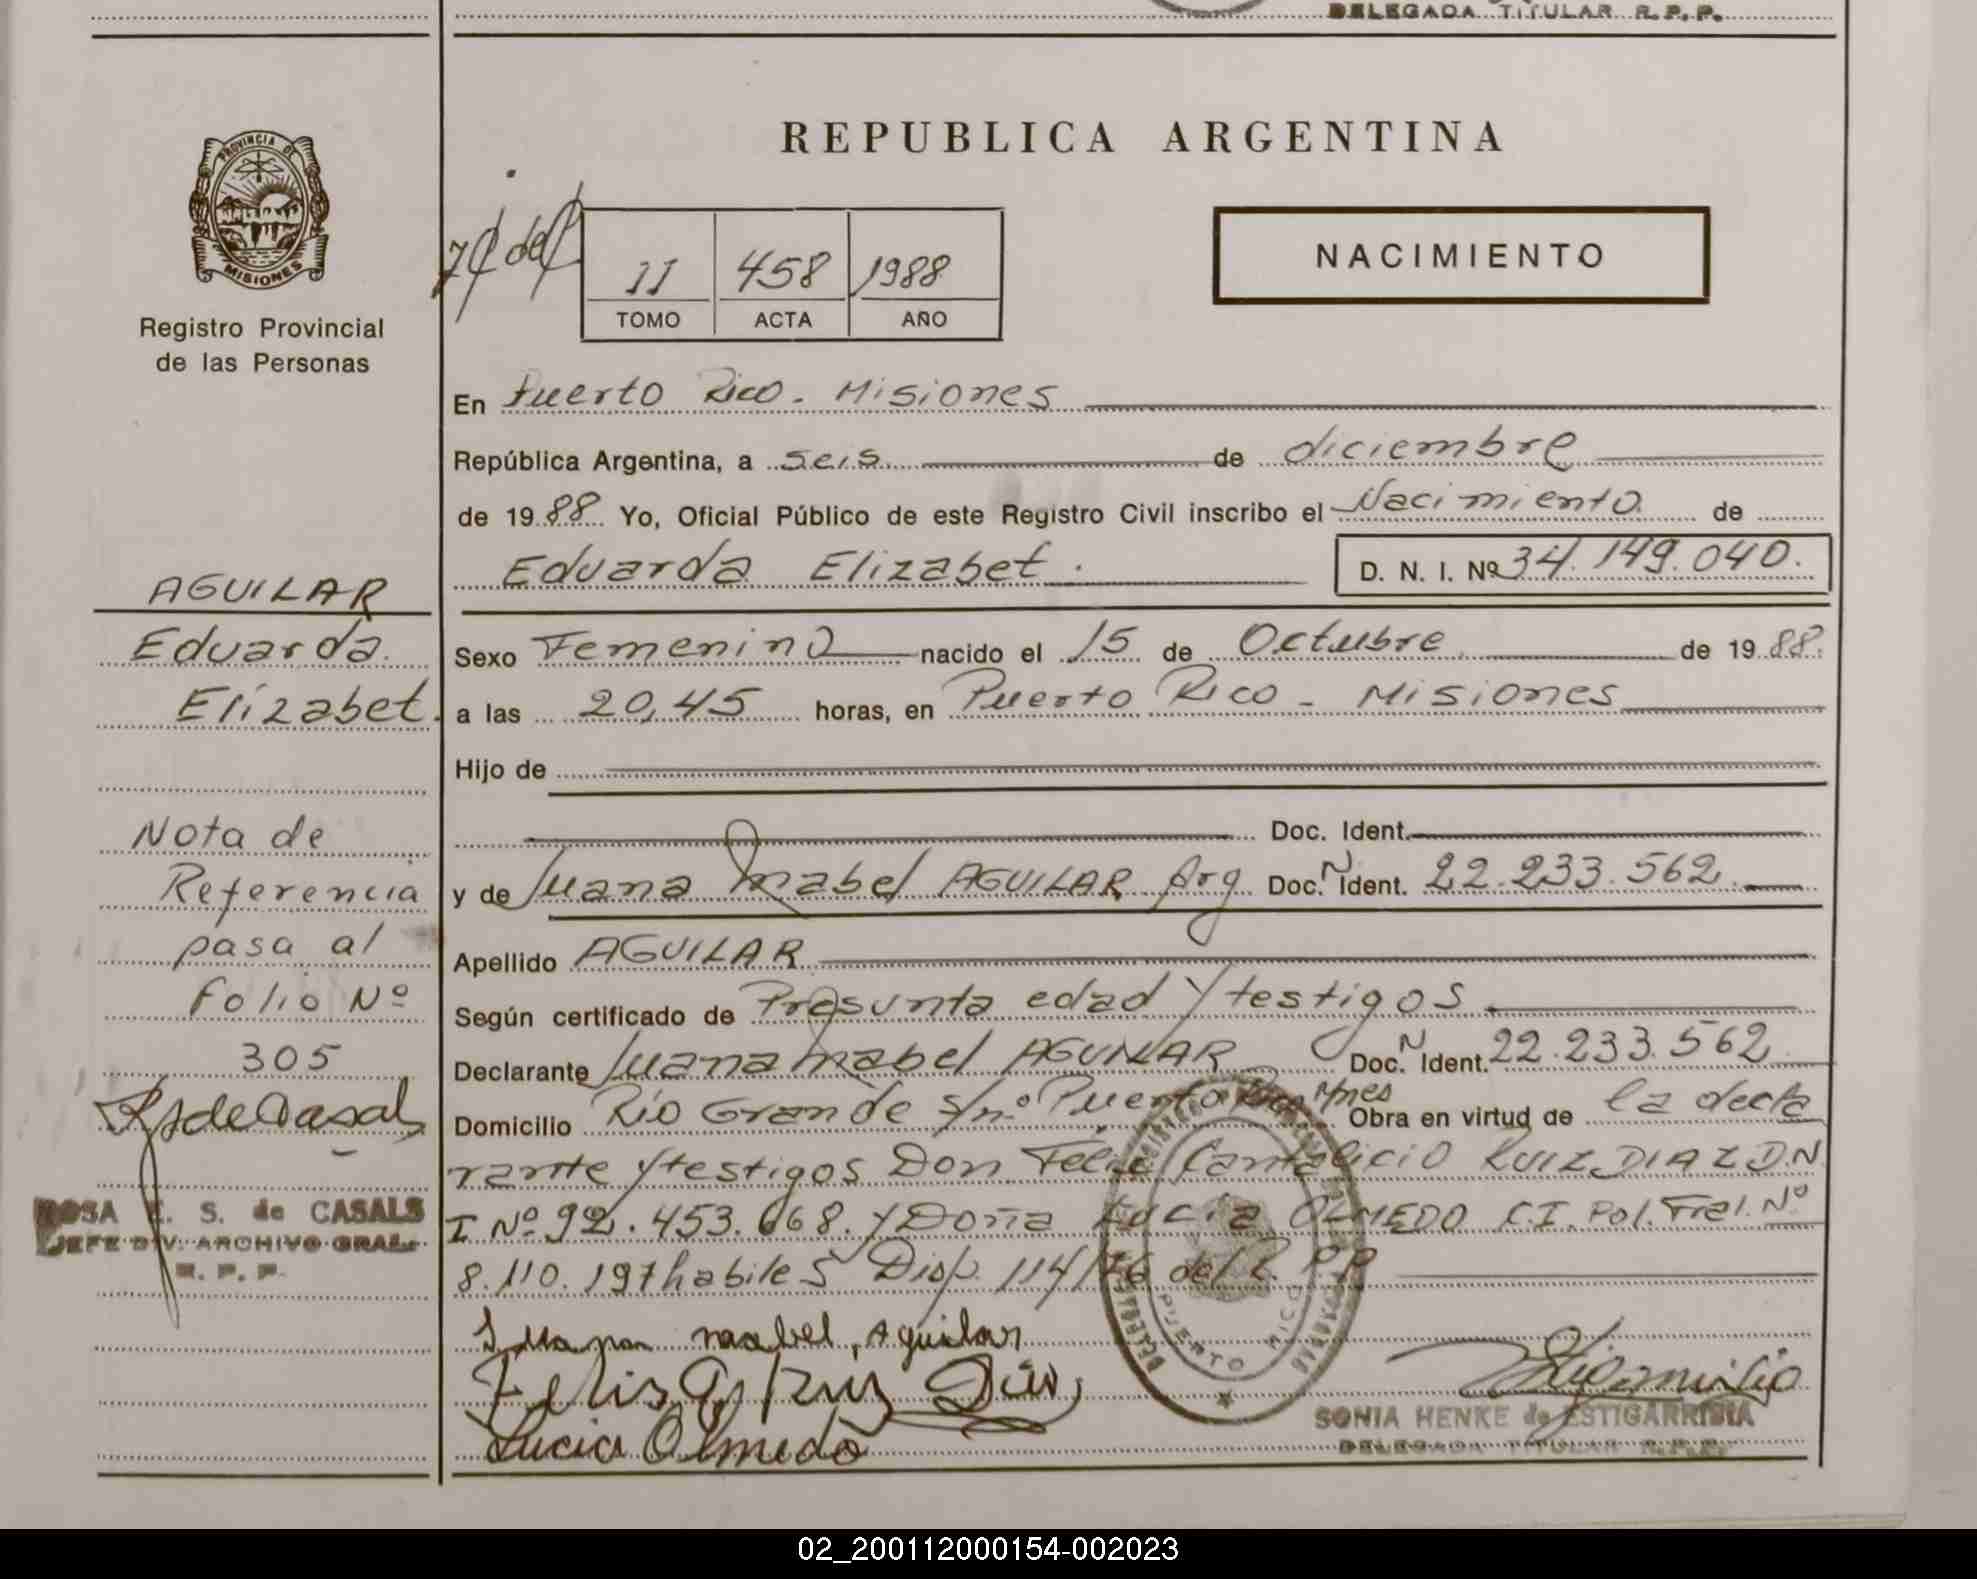 DELEGADA TITULAR R.P.P.
REPUBLICA ARGENTINA
PROVINCIA DE
MISIONES
Registro Provincial
de las Personas
11 458 1988
TOMO ACTA AÑO
NACIMIENTO
En Puerto Rico. Misiones
República Argentina, a seis de diciembre
de 1988 Yo, Oficial Público de este Registro Civil inscribo el Nacimiento de
Eduarda Elizabet. D. N. I. Nº 34.149.040.
Sexo Femenino nacido el 15 de Octubre de 1988.
a las 20,45 horas, en Puerto Rico - Misiones
Hijo de
Doc. Ident.
y de Juana Mabel AGUILAR Arg Doc. N Ident. 22.233.562.
Apellido AGUILAR
Según certificado de Presunta edad y testigos.
Declarante Juana Mabel AGUILAR Doc. N Ident. 22.233.562
Domicilio Río Grande s/nº Puerto Rico Mnes Obra en virtud de la decla
rante y testigos Don Félix Cantalicio RUIZ DIAZ D.N.
I Nº 92.453.668. y Doña Lucía OLMEDO C.I. Pol. Fral. Nº
8.110.197 habiles Disp. 114/76 del R.P.P
Juana mabel, Aguilar
Felix C Ruiz Diaz
Lucia Olmedo
SONIA HENKE de ESTIGARRIBIA
DELEGADA TITULAR R.P.P.
PUERTO RICO
AGUILAR
Eduarda
Elizabet.
Nota de
Referencia
pasa al
Folio Nº
305
RSdeCasals
ROSA E. S. de CASALS
JEFE DIV. ARCHIVO GRAL.
R. P. P.
02_200112000154-002023